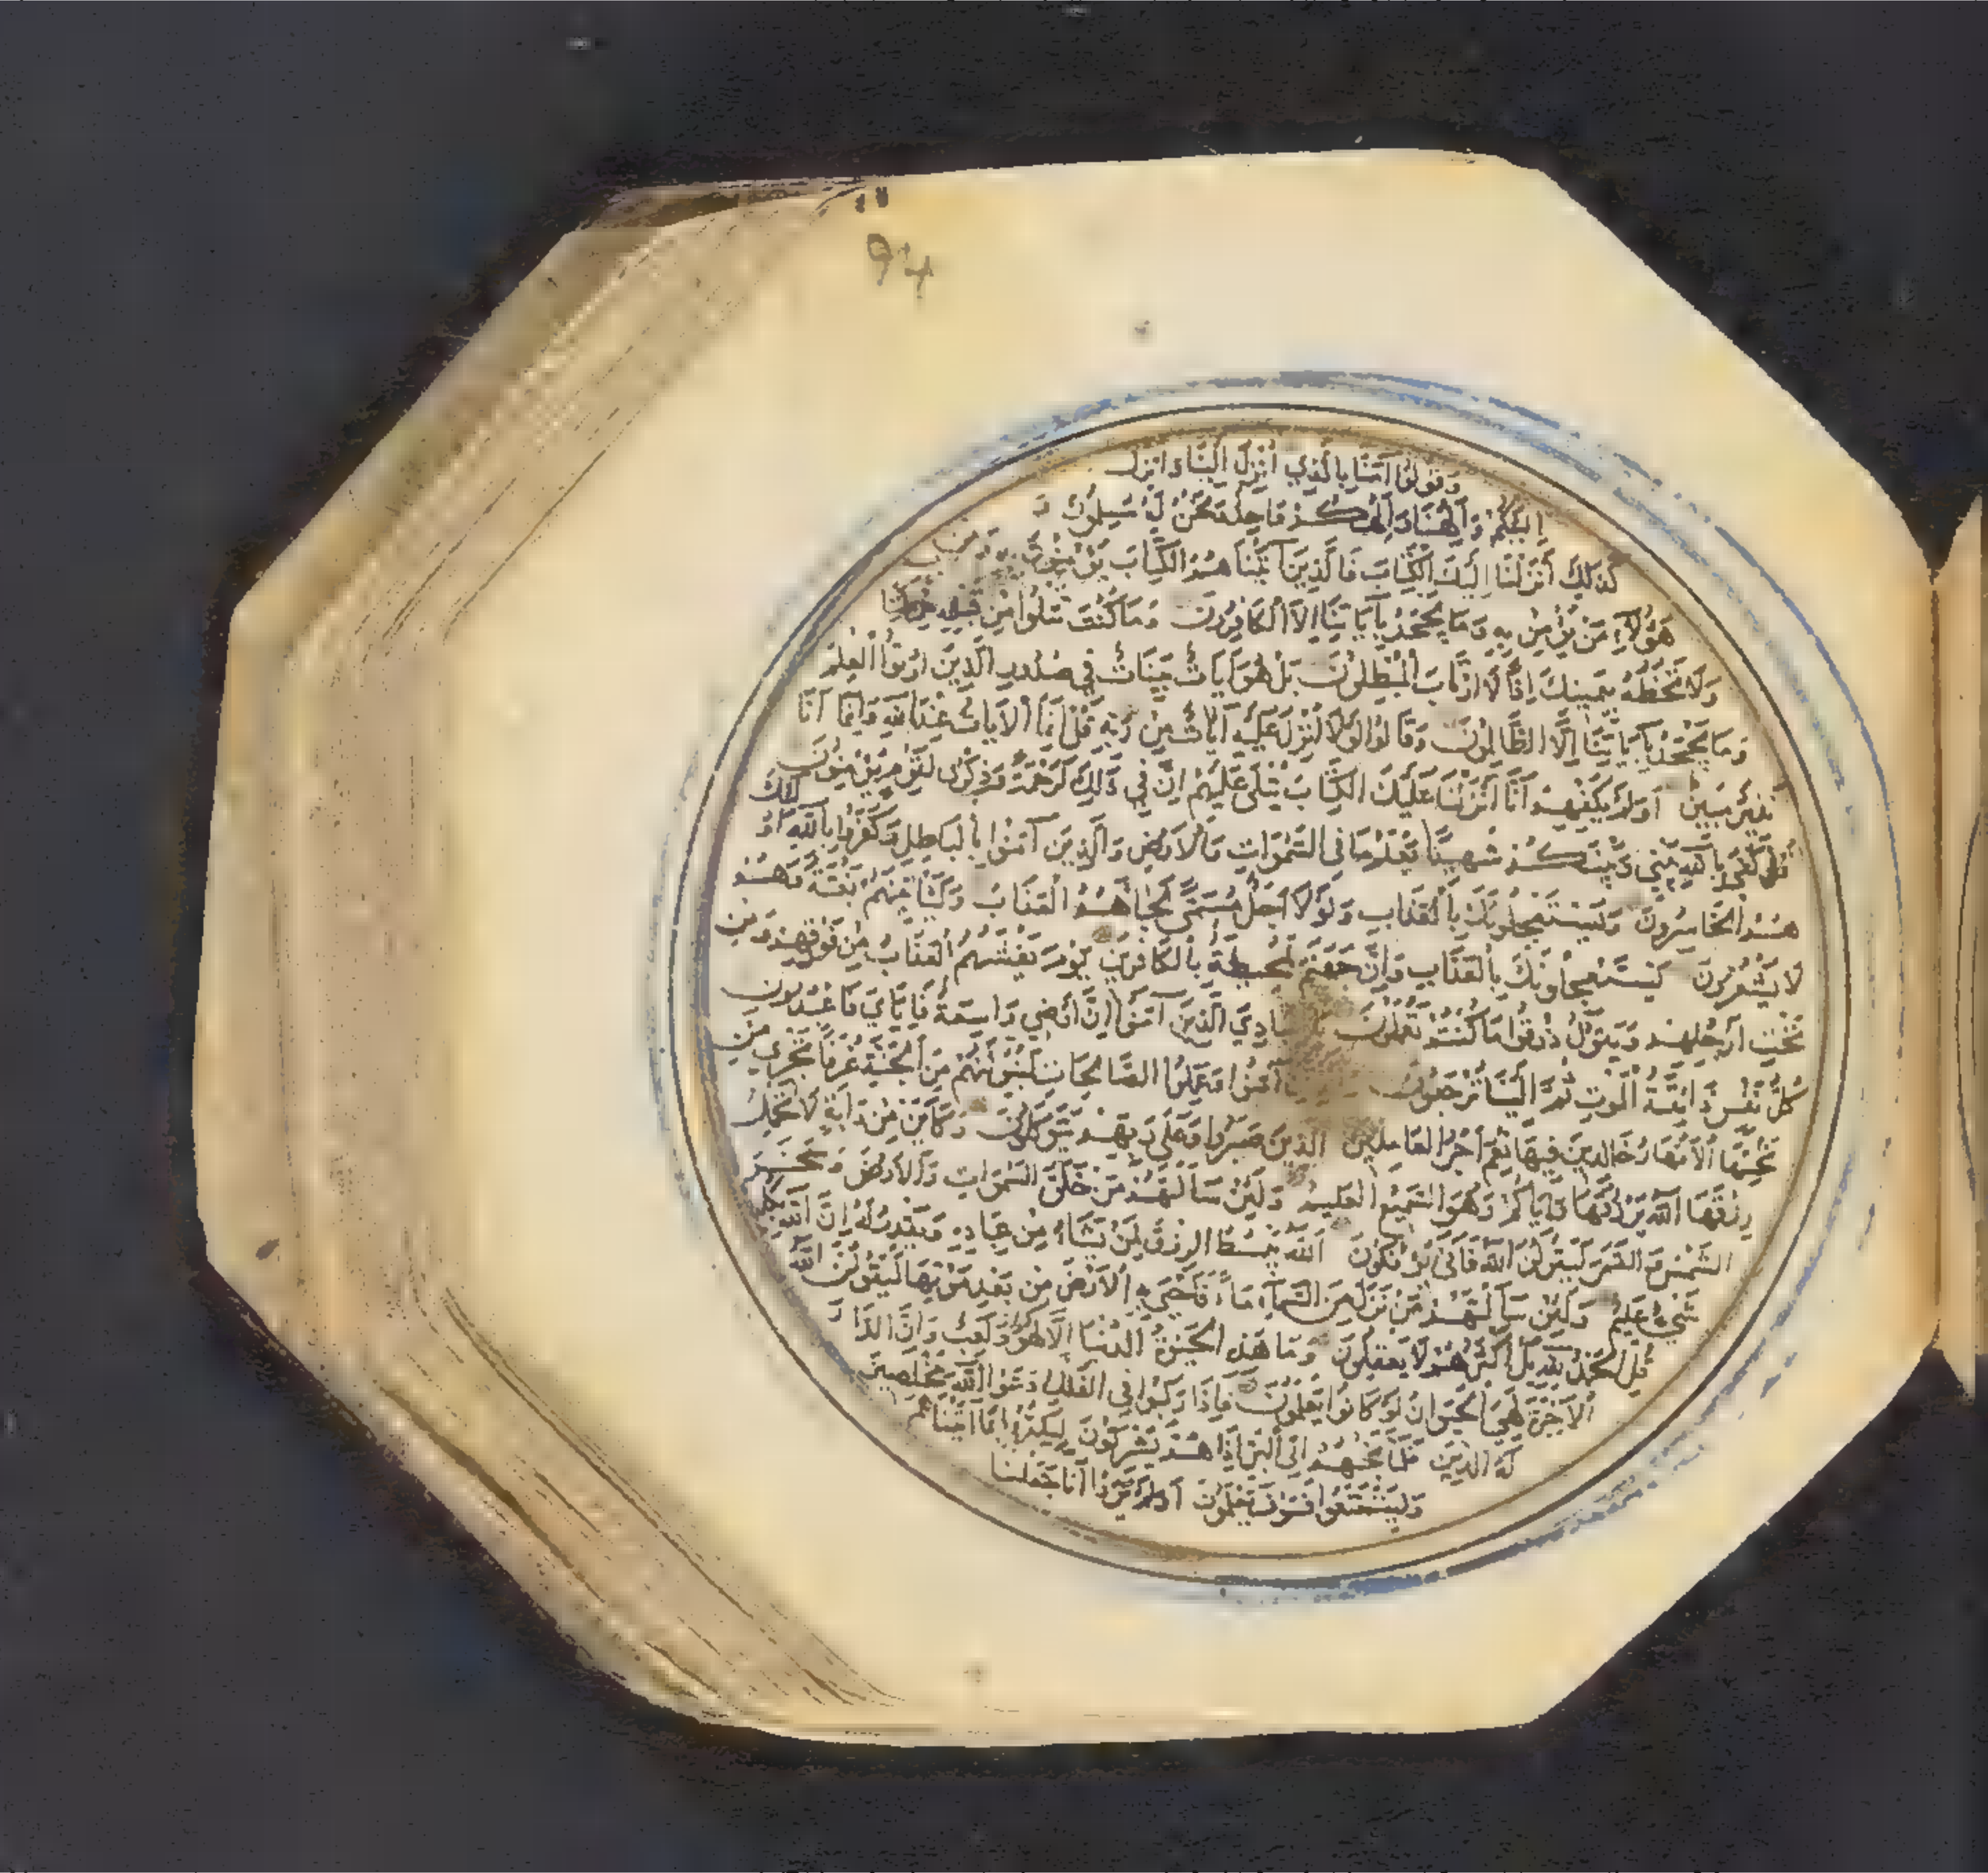 94
وَقُولُوا آمَنَّا بِالَّذِي أُنْزِلَ إِلَيْنَا وَأُنْزِلَ
إِلَيْكُمْ وَإِلَهُنَا وَإِلَهُكُمْ وَاحِدٌ وَنَحْنُ لَهُ مُسْلِمُونَ وَ
كَذَلِكَ أَنْزَلْنَا إِلَيْكَ الْكِتَابَ فَالَّذِينَ آتَيْنَاهُمُ الْكِتَابَ يُؤْمِنُونَ بِهِ وَمِنْ
هَؤُلَاءِ مَنْ يُؤْمِنُ بِهِ وَمَا يَجْحَدُ بِآيَاتِنَا إِلَّا الْكَافِرُونَ وَمَا كُنْتَ تَتْلُوا مِنْ قَبْلِهِ مِنْ كِتَابٍ
وَلَا تَخُطُّهُ بِيَمِينِكَ إِذًا لَارْتَابَ الْمُبْطِلُونَ بَلْ هُوَ آيَاتٌ بَيِّنَاتٌ فِي صُدُورِ الَّذِينَ أُوتُوا الْعِلْمَ
وَمَا يَجْحَدُ بِآيَاتِنَا إِلَّا الظَّالِمُونَ وَقَالُوا لَوْلَا أُنْزِلَ عَلَيْهِ آيَاتٌ مِنْ رَبِّهِ قُلْ إِنَّمَا الْآيَاتُ عِنْدَ اللَّهِ وَإِنَّمَا أَنَا
نَذِيرٌ مُبِينٌ أَوَلَمْ يَكْفِهِمْ أَنَّا أَنْزَلْنَا عَلَيْكَ الْكِتَابَ يُتْلَى عَلَيْهِمْ إِنَّ فِي ذَلِكَ لَرَحْمَةً وَذِكْرَى لِقَوْمٍ يُؤْمِنُونَ
قُلْ كَفَى بِاللَّهِ بَيْنِي وَبَيْنَكُمْ شَهِيدًا يَعْلَمُ مَا فِي السَّمَوَاتِ وَالْأَرْضِ وَالَّذِينَ آمَنُوا بِالْبَاطِلِ وَكَفَرُوا بِاللَّهِ أُولَئِكَ
هُمُ الْخَاسِرُونَ وَيَسْتَعْجِلُونَكَ بِالْعَذَابِ وَلَوْلَا أَجَلٌ مُسَمًّى لَجَاءَهُمُ الْعَذَابُ وَلَيَأْتِيَنَّهُمْ بَغْتَةً وَهُمْ
لَا يَشْعُرُونَ يَسْتَعْجِلُونَكَ بِالْعَذَابِ وَإِنَّ جَهَنَّمَ لَمُحِيطَةٌ بِالْكَافِرِينَ يَوْمَ يَغْشَاهُمُ الْعَذَابُ مِنْ فَوْقِهِمْ وَمِنْ
تَحْتِ أَرْجُلِهِمْ وَيَقُولُ ذُوقُوا مَا كُنْتُمْ تَعْمَلُونَ يَا عِبَادِيَ الَّذِينَ آمَنُوا إِنَّ أَرْضِي وَاسِعَةٌ فَإِيَّايَ فَاعْبُدُونِ
كُلُّ نَفْسٍ ذَائِقَةُ الْمَوْتِ ثُمَّ إِلَيْنَا تُرْجَعُونَ وَالَّذِينَ آمَنُوا وَعَمِلُوا الصَّالِحَاتِ لَنُبَوِّئَنَّهُمْ مِنَ الْجَنَّةِ غُرَفًا تَجْرِي مِنْ
تَحْتِهَا الْأَنْهَارُ خَالِدِينَ فِيهَا نِعْمَ أَجْرُ الْعَامِلِينَ الَّذِينَ صَبَرُوا وَعَلَى رَبِّهِمْ يَتَوَكَّلُونَ وَكَأَيِّنْ مِنْ دَابَّةٍ لَا تَحْمِلُ
رِزْقَهَا اللَّهُ يَرْزُقُهَا وَإِيَّاكُمْ وَهُوَ السَّمِيعُ الْعَلِيمُ وَلَئِنْ سَأَلْتَهُمْ مَنْ خَلَقَ السَّمَوَاتِ وَالْأَرْضَ وَسَخَّرَ
الشَّمْسَ وَالْقَمَرَ لَيَقُولُنَّ اللَّهُ فَأَنَّى يُؤْفَكُونَ اللَّهُ يَبْسُطُ الرِّزْقَ لِمَنْ يَشَاءُ مِنْ عِبَادِهِ وَيَقْدِرُ لَهُ إِنَّ اللَّهَ بِكُلِّ
شَيْءٍ عَلِيمٌ وَلَئِنْ سَأَلْتَهُمْ مَنْ نَزَّلَ مِنَ السَّمَاءِ مَاءً فَأَحْيَى بِهِ الْأَرْضَ مِنْ بَعْدِ مَوْتِهَا لَيَقُولُنَّ اللَّهُ
قُلِ الْحَمْدُ لِلَّهِ بَلْ أَكْثَرُهُمْ لَا يَعْقِلُونَ وَمَا هَذِهِ الْحَيَوةُ الدُّنْيَا إِلَّا لَهْوٌ وَلَعِبٌ وَإِنَّ الدَّارَ
الْآخِرَةَ لَهِيَ الْحَيَوَانُ لَوْ كَانُوا يَعْلَمُونَ فَإِذَا رَكِبُوا فِي الْفُلْكِ دَعَوُا اللَّهَ مُخْلِصِينَ
لَهُ الدِّينَ فَلَمَّا نَجَّاهُمْ إِلَى الْبَرِّ إِذَا هُمْ يُشْرِكُونَ لِيَكْفُرُوا بِمَا آتَيْنَاهُمْ
وَلِيَتَمَتَّعُوا فَسَوْفَ يَعْلَمُونَ أَوَلَمْ يَرَوْا أَنَّا جَعَلْنَا